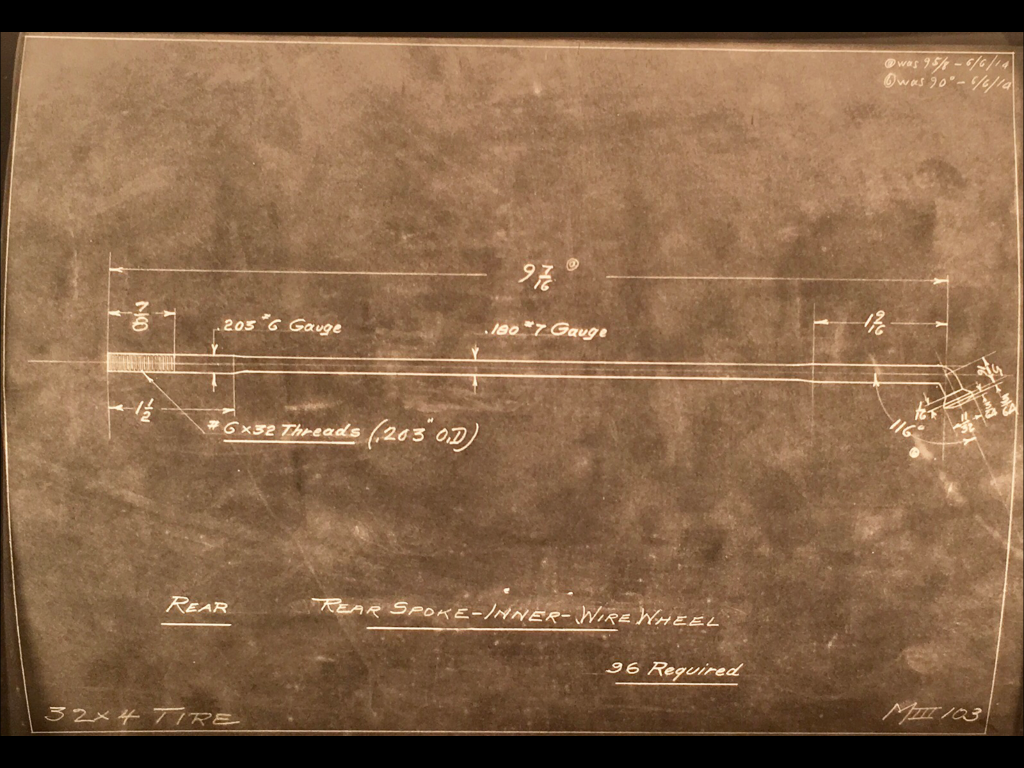 ⓐ was 9 5/8 - 6/6/14
ⓑ was 90° - 6/6/14
9 7/16 ⓐ
7/8
.203 #6 Gauge
.180 #7 Gauge
1 9/16
1 1/2
#6x32 Threads (.203" O.D)
1/16
11/32
116°
REAR
REAR SPOKE-INNER-WIRE WHEEL
96 Required
32x4 TIRE
MIII 103